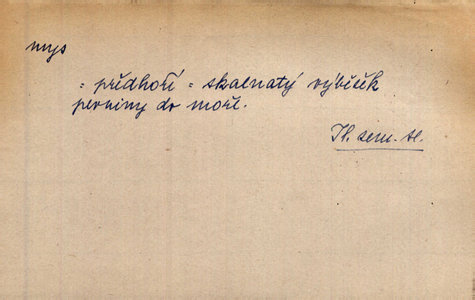 mys
= předhoří = skalnatý výběžek
pevniny do moře.
Tl. zem. sl.